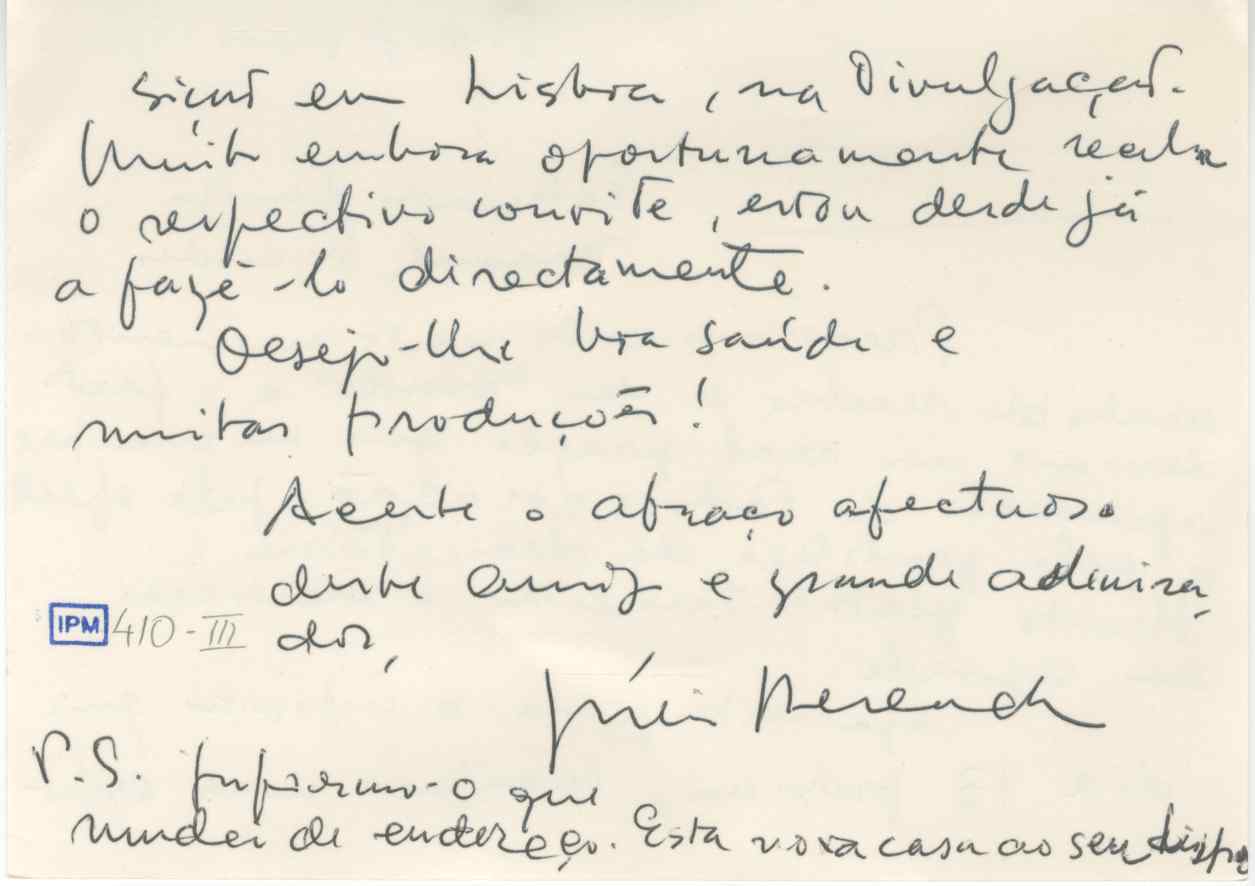 sição em Lisboa, na Divulgação.
Muito embora oportunamente receba
o respectivo convite, estou desde já
a fazê-lo directamente.
Desejo-lhe boa saúde e
muitas produções!
Aceite o abraço afectuoso
deste amigo e grande admira-
dor,
IPM 410-III
Júlio Resende
P.S. Informo-o que
mudei de endereço. Esta nova casa ao seu dispor